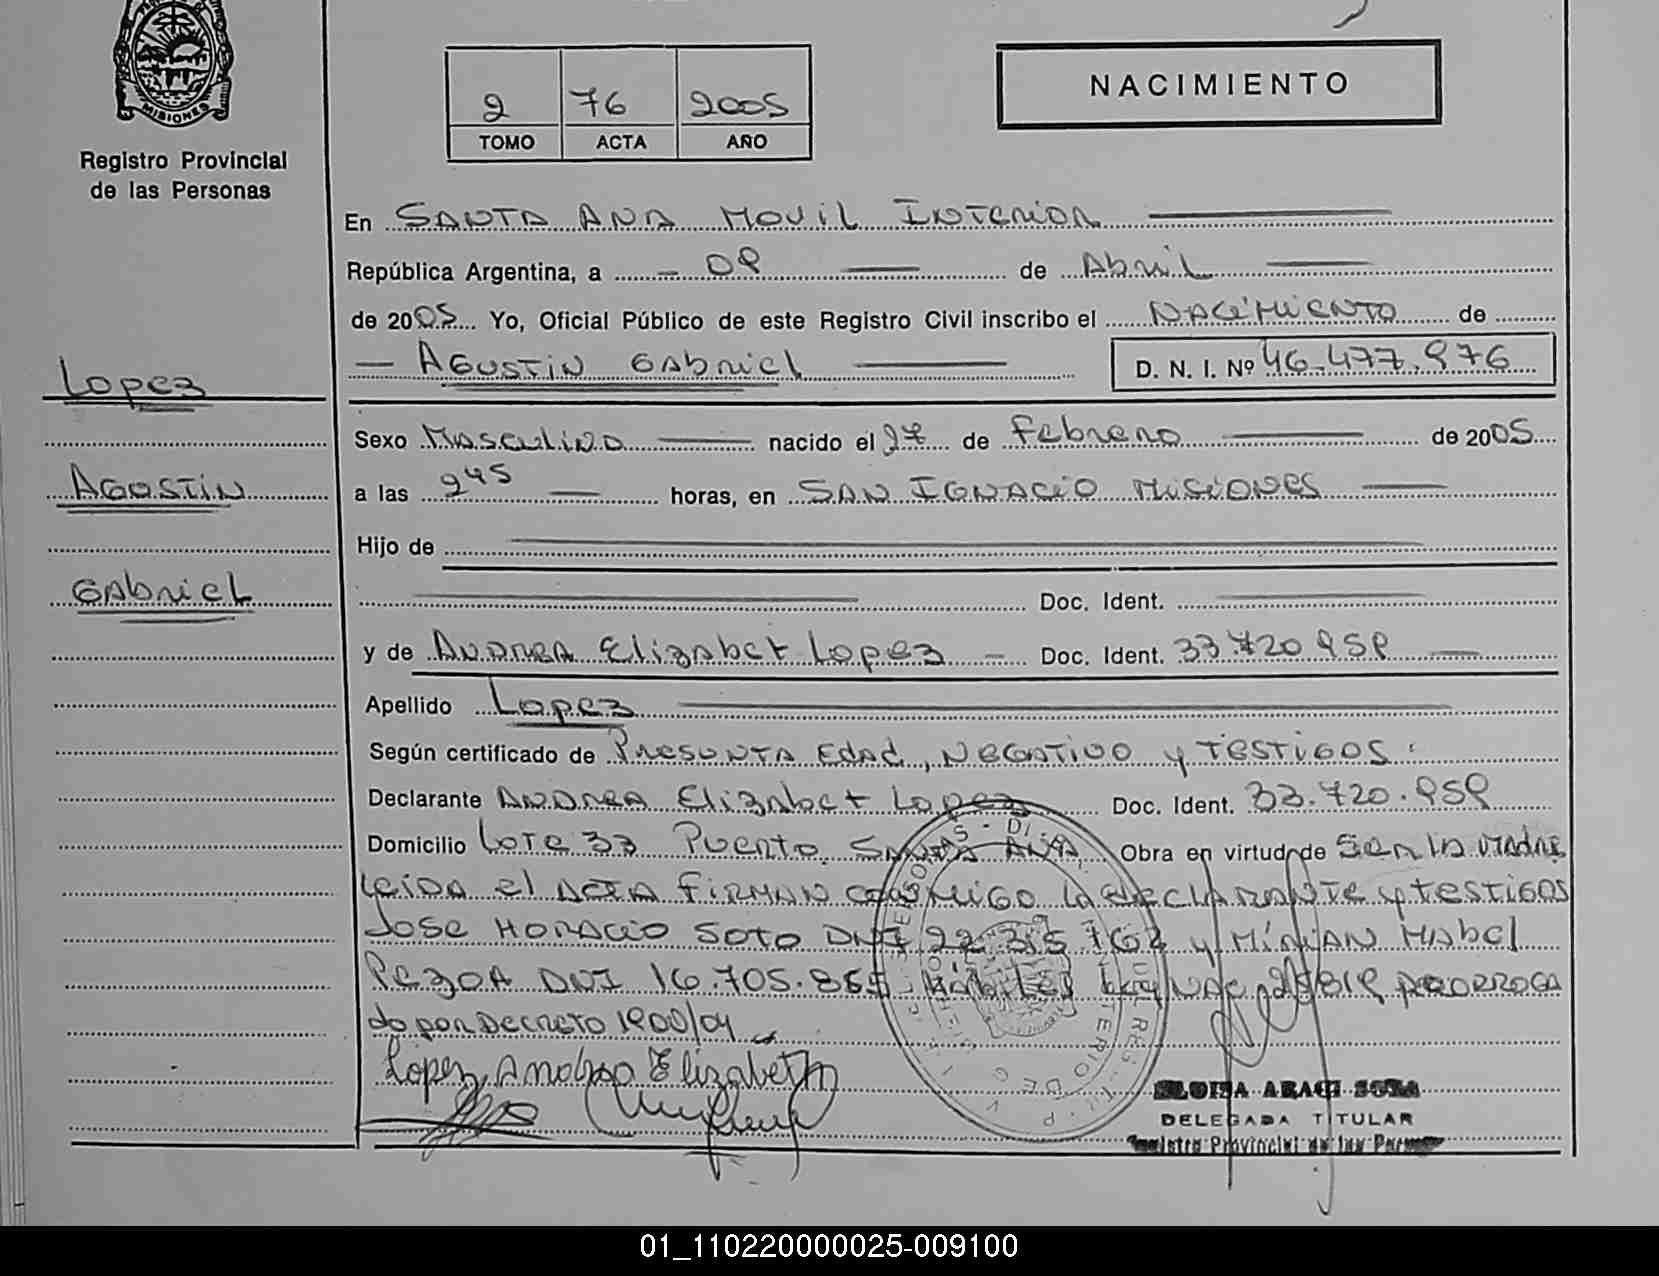 MISIONES
Registro Provincial
de las Personas
2 76 2005
TOMO ACTA AÑO
NACIMIENTO
En SANTA ANA MOVIL INTERIOR
República Argentina, a 08 de Abril
de 2005 Yo, Oficial Público de este Registro Civil inscribo el NACIMIENTO de
AGUSTIN GABRIEL D. N. I. Nº 46.477.976
Lopez
AGUSTIN
GABRIEL
Sexo MASCULINO nacido el 27 de Febrero de 2005
a las 245 horas, en SAN IGNACIO MISIONES
Hijo de
Doc. Ident.
y de ANDREA Elizabet Lopez Doc. Ident. 33.720.958
Apellido Lopez
Según certificado de PRESUNTA EDAD, NEGATIVO y TESTIGOS
Declarante ANDREA Elizabet Lopez Doc. Ident. 33.720.958
Domicilio LOTE 33 PUERTO SANTA ANA Obra en virtud de SER LA MADRE
LEIDA el ACTA FIRMAN CONMIGO la DECLARANTE y TESTIGOS
JOSE HORACIO SOTO DNI 22.315.762 y MIRIAN MABEL
PEZOA DNI 16.705.865 prorroga
do por Decreto 1900/04
Lopez Andrea Elizabeth
DELEGADA TITULAR
Registro Provincial de las Personas
01_110220000025-009100